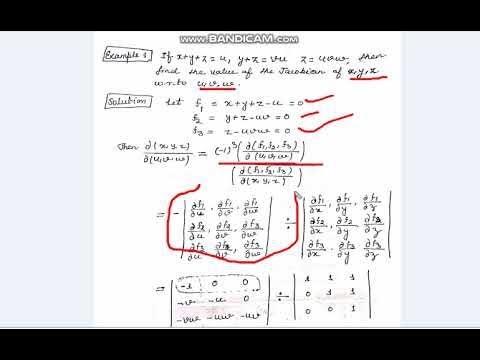 www.BANDICAM.com
Example 1 If x+y+z=u, y+z=vu z=uvw, then
find the value of the Jacobian of x,y,z
w.r.to u,v,w.
Solution Let f₁ = x+y+z-u = 0
f₂ = y+z-uv = 0
f₃ = z-uvw = 0
Then ∂(x,y,z)/∂(u,v,w) = (-1)³ (∂(f₁,f₂,f₃)/∂(u,v,w)) / (∂(f₁,f₂,f₃)/∂(x,y,z))
= - | ∂f₁/∂u, ∂f₁/∂v, ∂f₁/∂w | ÷ | ∂f₁/∂x, ∂f₁/∂y, ∂f₁/∂z |
| ∂f₂/∂u, ∂f₂/∂v, ∂f₂/∂w | | ∂f₂/∂x, ∂f₂/∂y, ∂f₂/∂z |
| ∂f₃/∂u, ∂f₃/∂v, ∂f₃/∂w | | ∂f₃/∂x, ∂f₃/∂y, ∂f₃/∂z |
= | -1 0 0 | ÷ | 1 1 1 |
| -v -u 0 | | 0 1 1 |
| -vw -uw -uv | | 0 0 1 |